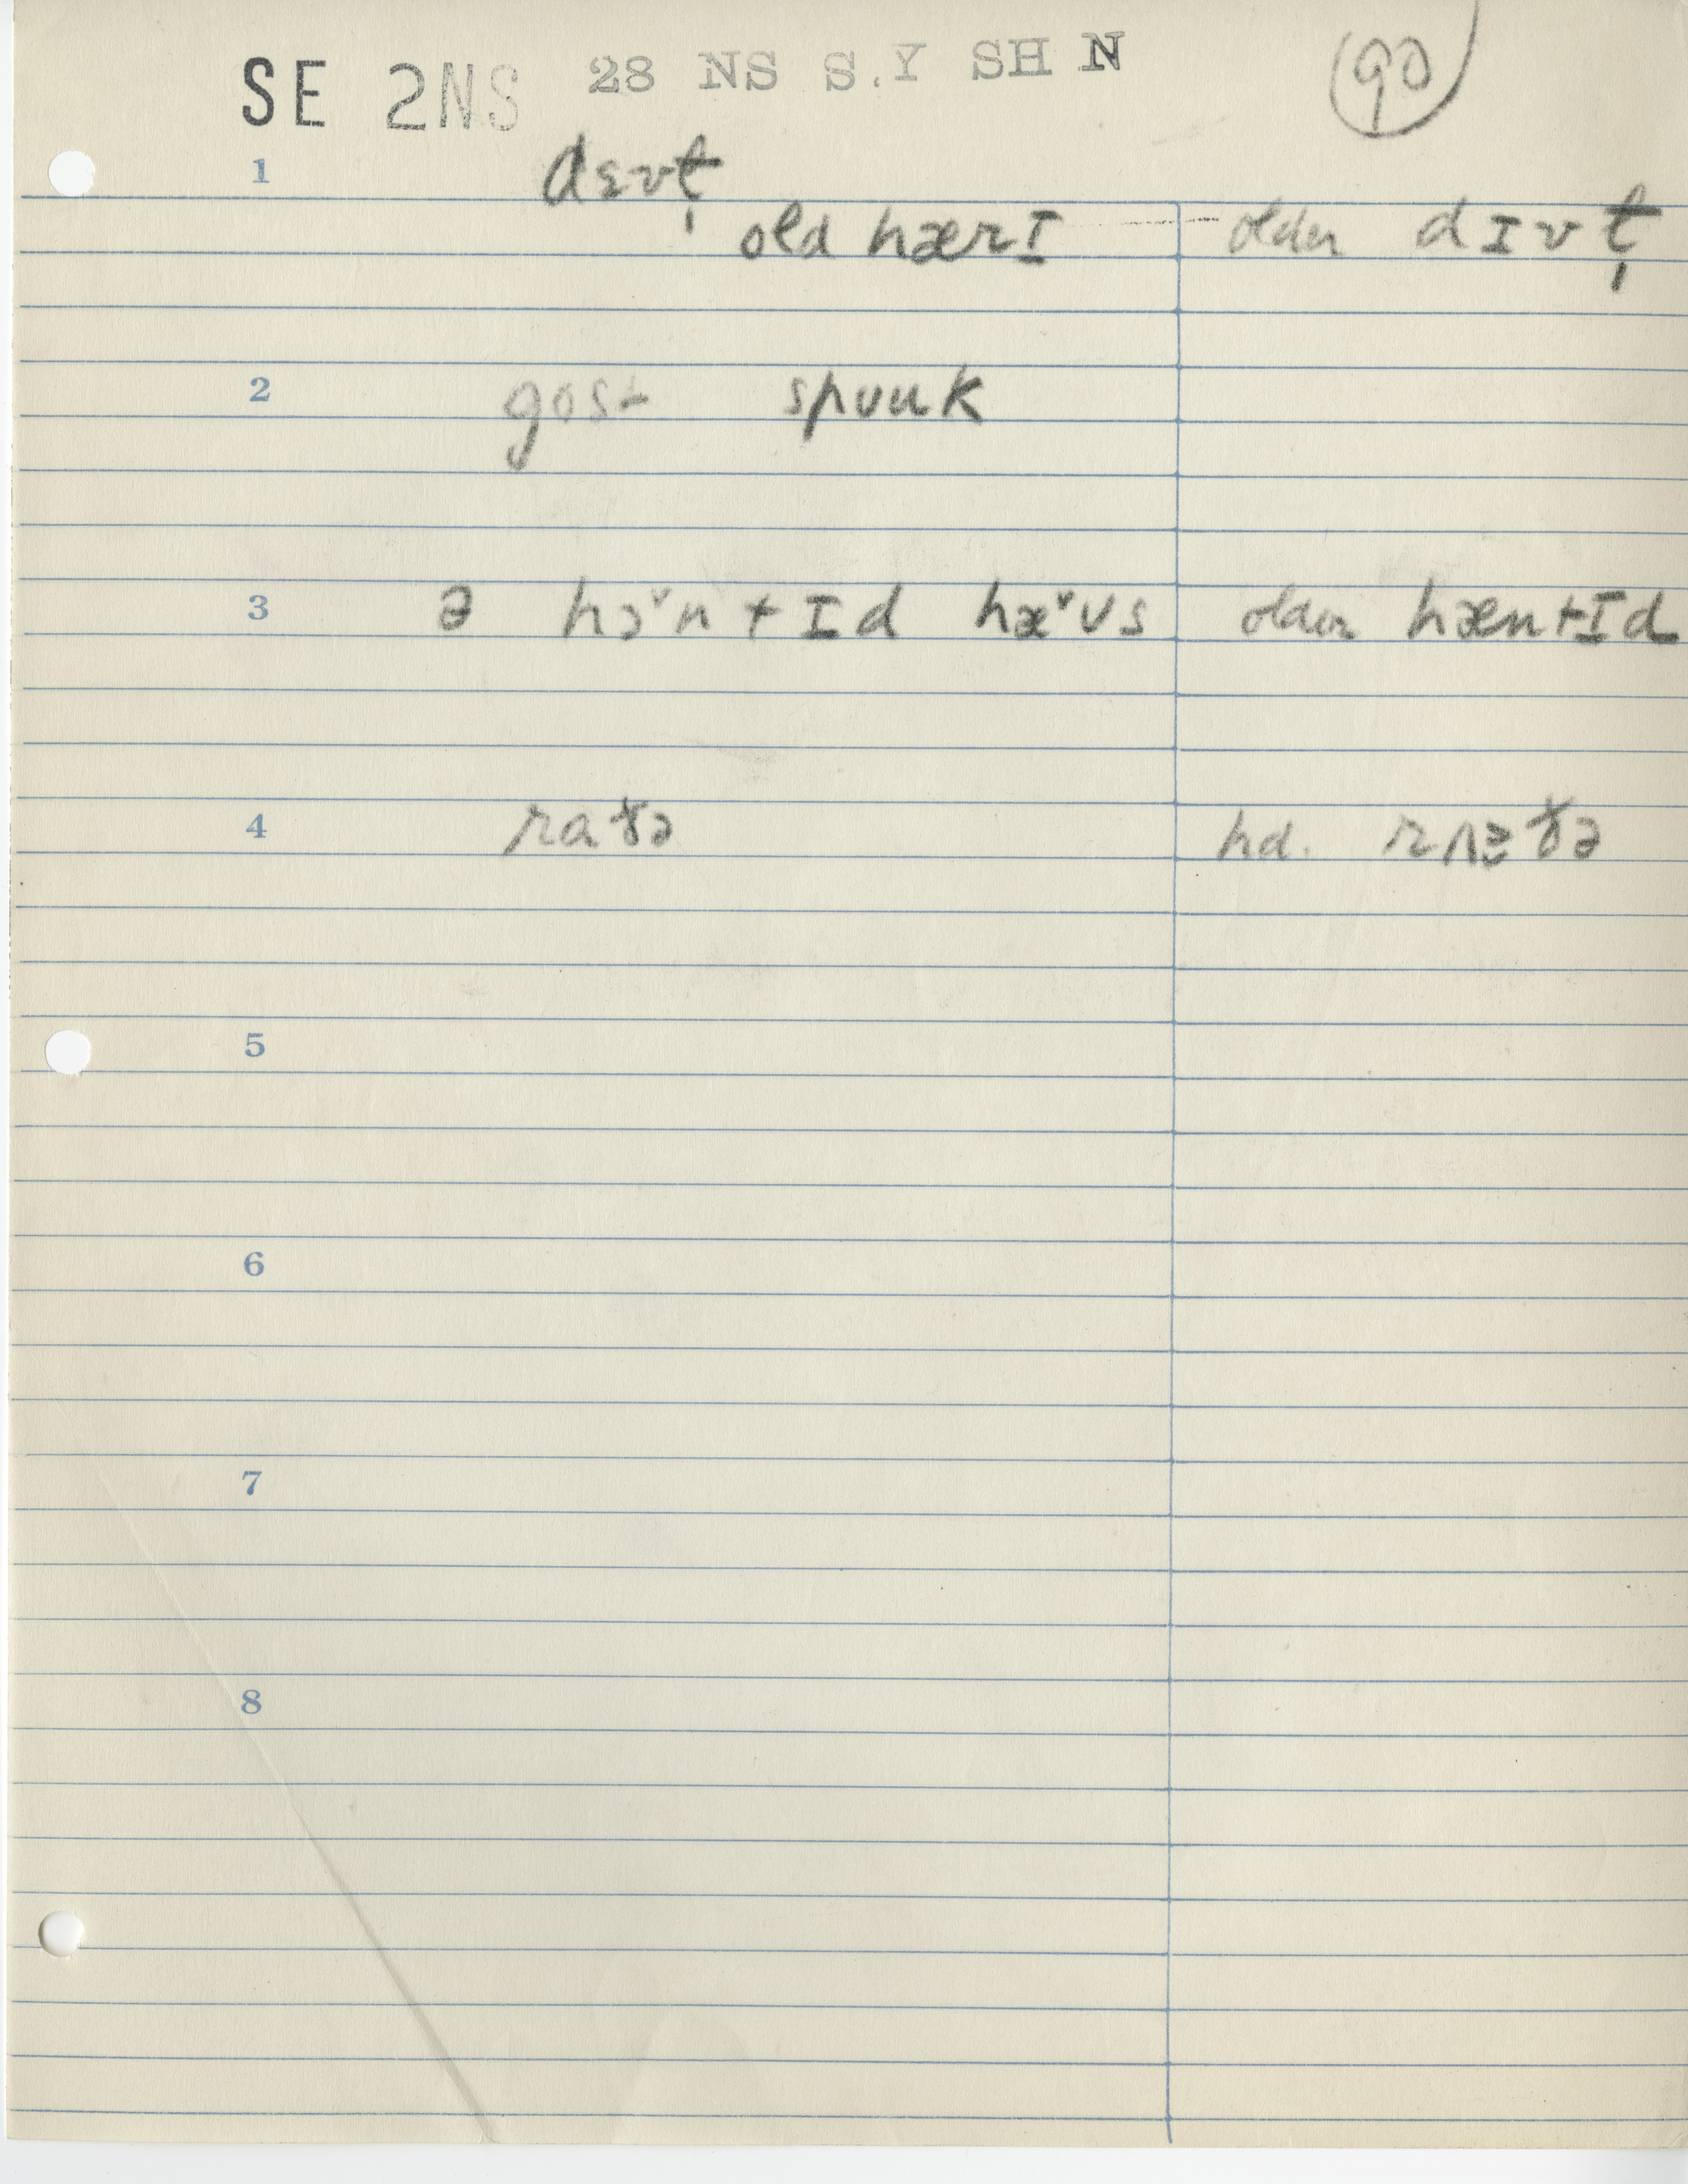 SE 2NS 28 NS S.Y SH N 90
1 dɛvɫ̩
old hærɪ older dɪvɫ̩
2 gost spuuk
3 ə hɔ˅ntɪd hæ˅ʊs older hæntɪd
4 raɤə hd.
5
6
7
8